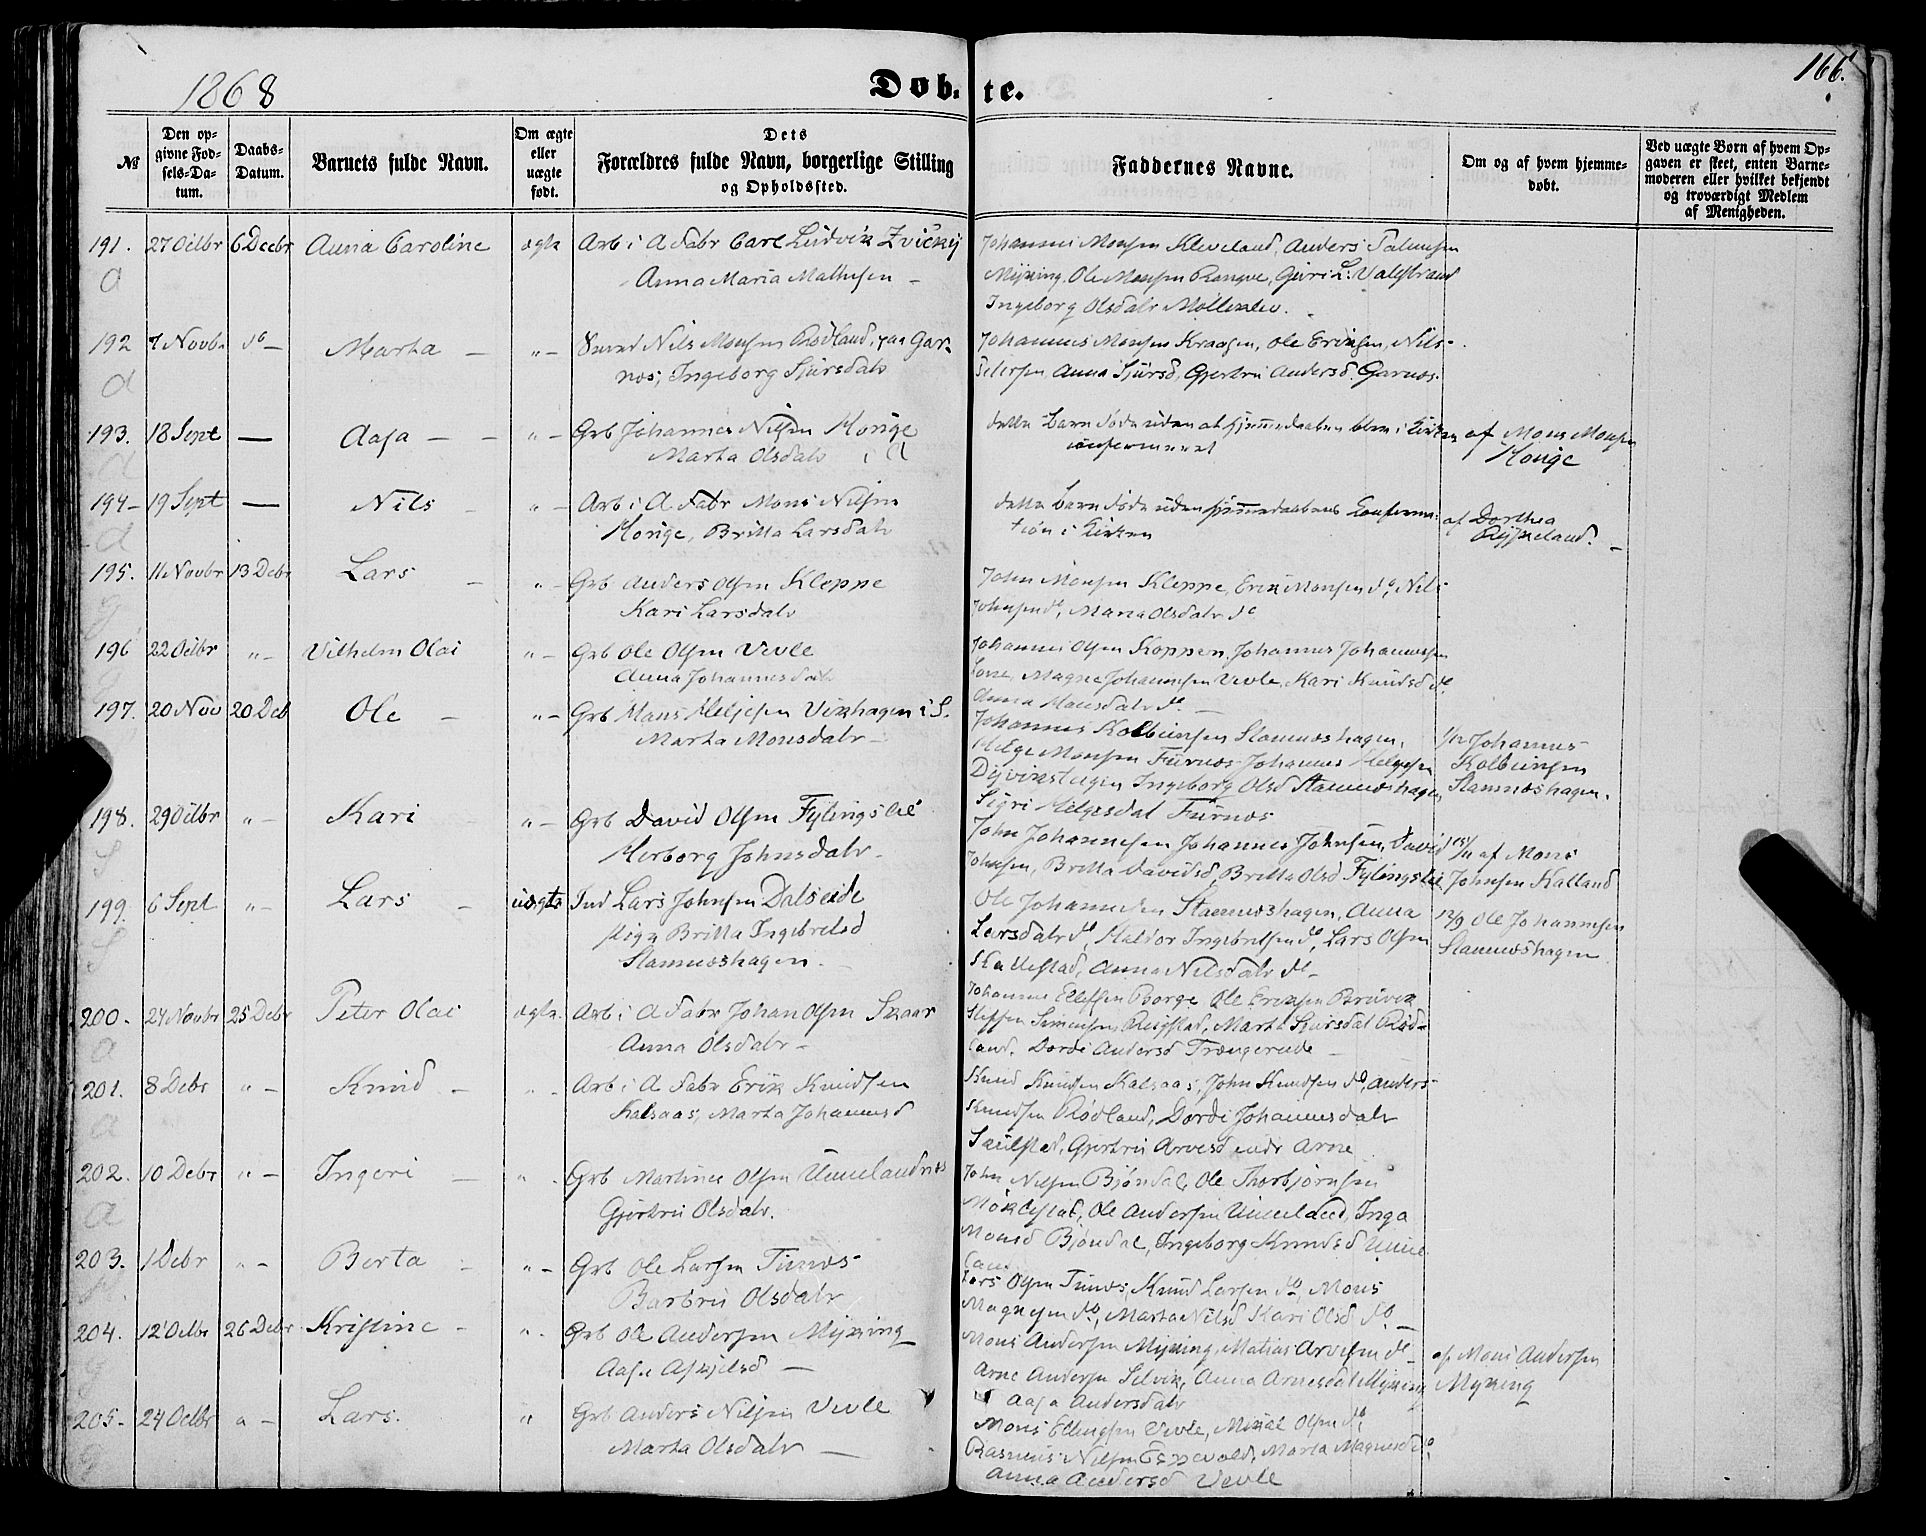 1868
Døb-te.
166.
№
Den opgivne Fødsels-Datum.
Daabs-Datum.
Barnets fulde Navn.
Om ægte eller uægte født.
Dets Forældres fulde Navn, borgerlige Stilling og Opholdssted.
Faddernes Navne.
Om og af hvem hjemmedøbt.
Ved uægte Børn af hvem Opgaven er skeet, enten Barnemoderen eller hvilket bekjendt og troværdigt Medlem af Menigheden.
191. 27 Octbr 6 Decbr Anna Caroline ægte Arb i A Fabr Carl Ludvik Zvicky
Anna Maria Mathesen –
Johannes Monsen Kleveland, Anders
Myking, Ole Monsen
Ingeborg Olsdatr
a
192 7 Novbr 16 – Marta – " – Nils Monsen Rødland, paa Gar-
næs, Ingeborg Sjursdatr
Johannes Monsen Ole Eriksen, Nils
Anna Sjursd, Gjertru Andersd. Garnæs.
a
193. 18 Sept — Aasa – – " – Grb Johannes Nilsen Houge
Marta Olsdatr
dette Barn døde uden at hjemmedaaben blev i Kirken
af Mons Monsen
Houge
a
194 – 19 Sept — Nils " – Arb i A Fabr Mons Nilsen
Houge, Britta Larsdatr
dette Barn døde uden hjemmedaabens Konfirma-
tion i Kirken
af Dorthea
a
195. 11 Novbr 13 Debr Lars – " – Grb Anders Olsen Kleppe
Kari Larsdatr
John Monsen Kleppe, Erik Monsen do, Nils
Johnsen do, Maria Olsdatr do
g
196 22 Octbr " – Vilhelm Olai " – Grb Ole Olsen Vevle
Anna Johannesdatr
Johannes Olsen Koppen, Johannes Johannessen
Magne Johannesen Vevle, Kari Knudsd do.
Anna Monsdatr do –
g
197. 20 Nov 20 Deb Ole – " – Grb Mons Helgesen Vikhagen i S.
Marta Monsdatr –
Johannes Kolbeinsen Stamneshagen,
Helge Monsen Furnes Johannes Helgesen
Ingeborg Olsd Stamneshagen
Sigri Helgesdat Furnes
1/12 Johannes
Kolbeinsen
Stamneshagen.
198. 29 Octbr " – Kari " – Grb David Olsen Fylingslid
Herborg Johnsdatr –
John Johannesen Johannes Johnsen, David
Johnsen, Britta Davidsd, Britta Olsd Fylingslid
15/11 af Mons
Johnsen Kalland
S
199. 6 Sept " – Lars – uægte Ind Lars Johnsen Dalseide
Pige Britta Ingebretsd
Stamneshagen –
Ole Johannesen Stamneshagen, Anna
Larsdatr do, Haldor Ingebretsen do, Lars Olsen
Skallestad, Anna Nilsdatr do –
12/9 Ole Johannesen
Stamneshagen
S
200. 24 Novbr 25 Debr Peter Olai ægte. Arb i A Fabr Johan Olsen Skaar
Anna Olsdatr –
Johannes Ellefsen Borge Ole Eriksen Bruvik
Steffen Simensen Marta Sjursdat Rød-
land. Dorde Andersd Trængereide –
a
201. 8 Debr " – Knud – " Arb i A Fabr Erik Knudsen
Kalsaas, Marta Johannesd
Knud Knudsen Kalsaas, John Knudsen do, Anders
Knudsen Rødland, Dorde Johannesdatr
Gjertru Arnesd Arne
a
202. 10 Debr " – Ingeri – " Grb Martines Olsen Unnelandnes
Gjertru Olsdatr.
John Nilsen Bjøndal, Ole Thorbjørnsen
Møklestad, Ole Andersen Unneland, Inga
Monsd Bjøndal, Ingeborg Knudsd Unne-
land
a
203. 1 Debr " – Berta – " – Grb Ole Larsen Tunes
Barbru Olsdatr
Lars Olsen Tunes, Knud Larsen do, Mons
Magnesen do, Marta Nilsd Kari Olsd do –
204. 12 Octbr 26 Debr Kristine – " – Grb Ole Andersen Myking
Aase Askjelsd –
Mons Andersen Myking, Matias Arnesen do –
Arne Andersen Selvik, Anna Arnesdat Myking
Aasa Andersdatr
af Mons Andersen
Myking
g
205. 24 Octbr " – Lars. " Grb Anders Nilsen Vevle
Marta Olsdatr –
Mons Ellingsen Vevle, Mikal Olsen do,
Rasmus Nilsen Espevold, Marta Magnesd do,
Anna Andersd Vevle
g